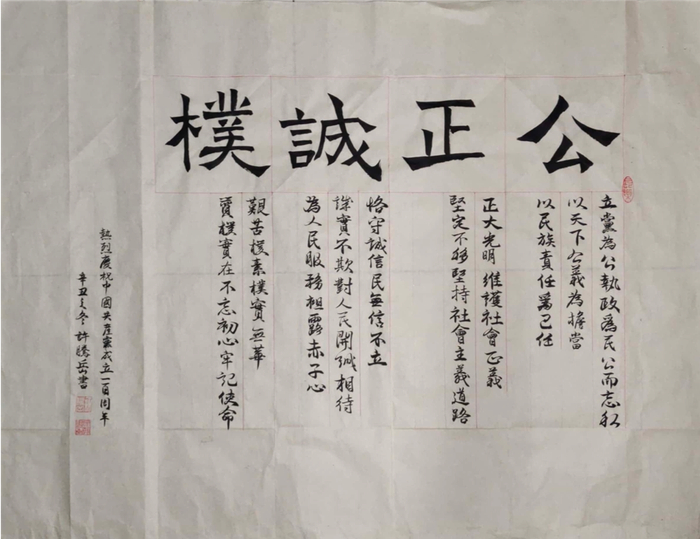 公正誠樸
立黨為公執政為民公而忘私
以天下公義為擔當
以民族責任為己任
正大光明 維護社會正義
堅定不移堅持社會主義道路
恪守誠信民無信不立
誠實不欺對人民開誠相待
為人民服務袒露赤子心
艱苦樸素樸實無華
質樸實在不忘初心牢記使命
熱烈慶祝中國共產黨成立一百周年
辛丑之冬許騰岳書